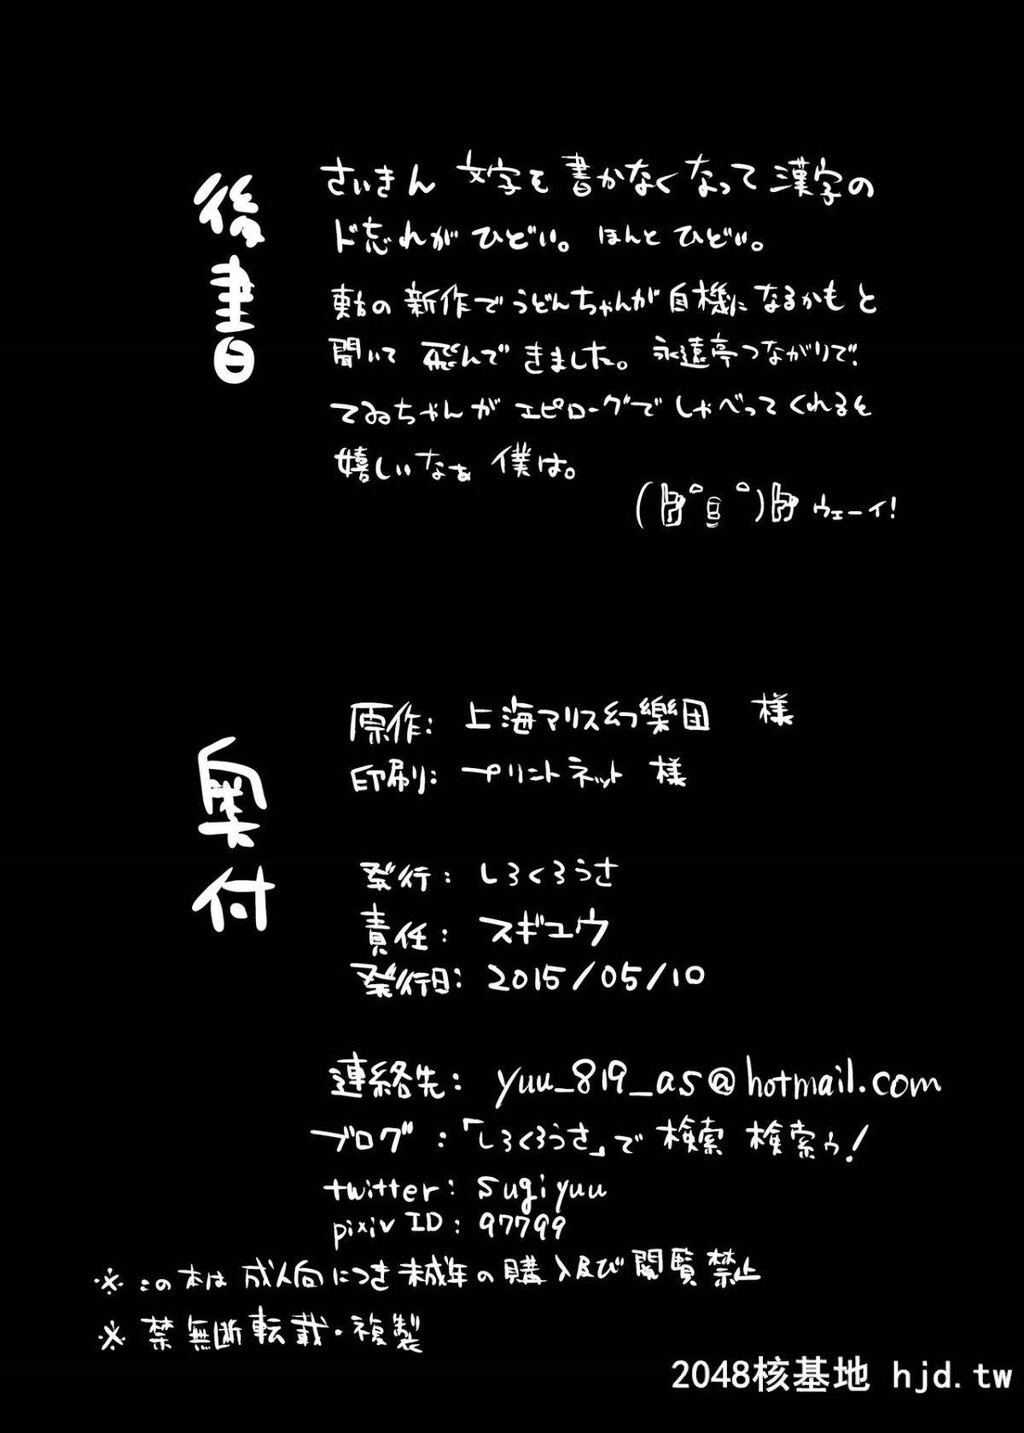 後書
さいきん 文字を書かなくなって漢字の
ド忘れがひどい。ほんとひどい。
東方の新作でうどんちゃんが自機になるかもと
聞いて飛んできました。永遠亭つながりで
てゐちゃんがエピローグでしゃべってくれると
嬉しいなぁ僕は。
ウェーイ!
奥付
原作: 上海アリス幻樂団 様
印刷: プリントネット 様
発行: しろくろうさ
責任: スギユウ
発行日: 2015/05/10
連絡先: yuu_819_as@hotmail.com
ブログ:「しろくろうさ」で検索検索ゥ!
twitter: sugiyuu
pixiv ID: 97799
※この本は成人向につき未成年の購入及び閲覧禁止
※禁無断転載・複製
2048核基地 hjd.tw